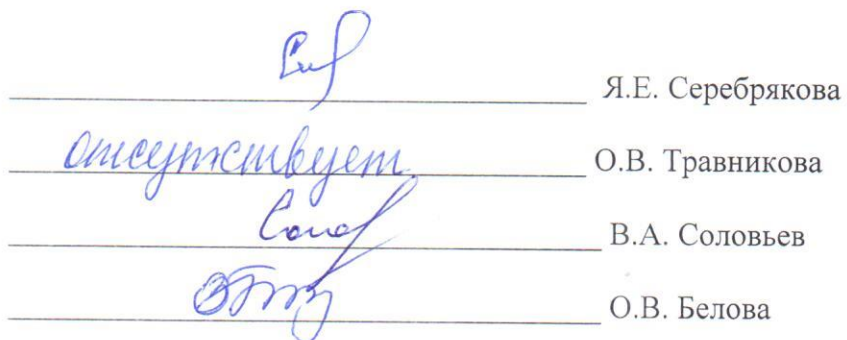 Я.Е. Серебрякова
отсутствует О.В. Травникова
В.А. Соловьев
О.В. Белова